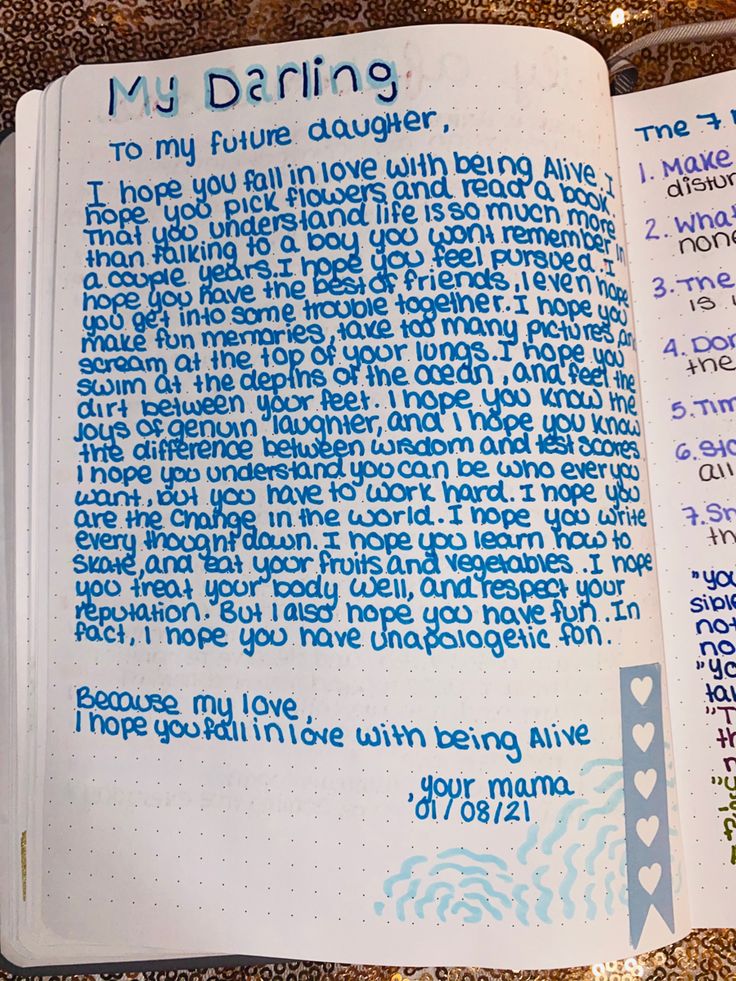 My Darling
To my future daughter,
I hope you fall in love with being Alive. I
hope you pick flowers and read a book.
That you understand life is so much more
than talking to a boy you wont remember in
a couple years. I hope you feel pursued. I
hope you have the best of friends, I even hope
you get into some trouble together. I hope you
make fun memories, take too many pictures, an
scream at the top of your lungs. I hope you
swim at the depths of the ocean, and feel the
dirt between your feet. I hope you know the
joys of genuin laughter, and I hope you know
the difference between wisdom and test scores
I hope you understand you can be who ever you
want, but you have to work hard. I hope you
are the change in the world. I hope you write
every thought down. I hope you learn how to
skate, and eat your fruits and vegetables. I hope
you treat your body well, and respect your
reputation. But I also hope you have fun. In
fact, I hope you have unapologetic fon.
Because my love,
I hope you fall in love with being Alive
, your mama
01/08/21
The 7
1. Make
distur
2. What
none
3. The
is
4. Don
the
5. Tim
6. Sto
all
7. Sm
th
"you
sible
not
no
"yo
tak
"T
th